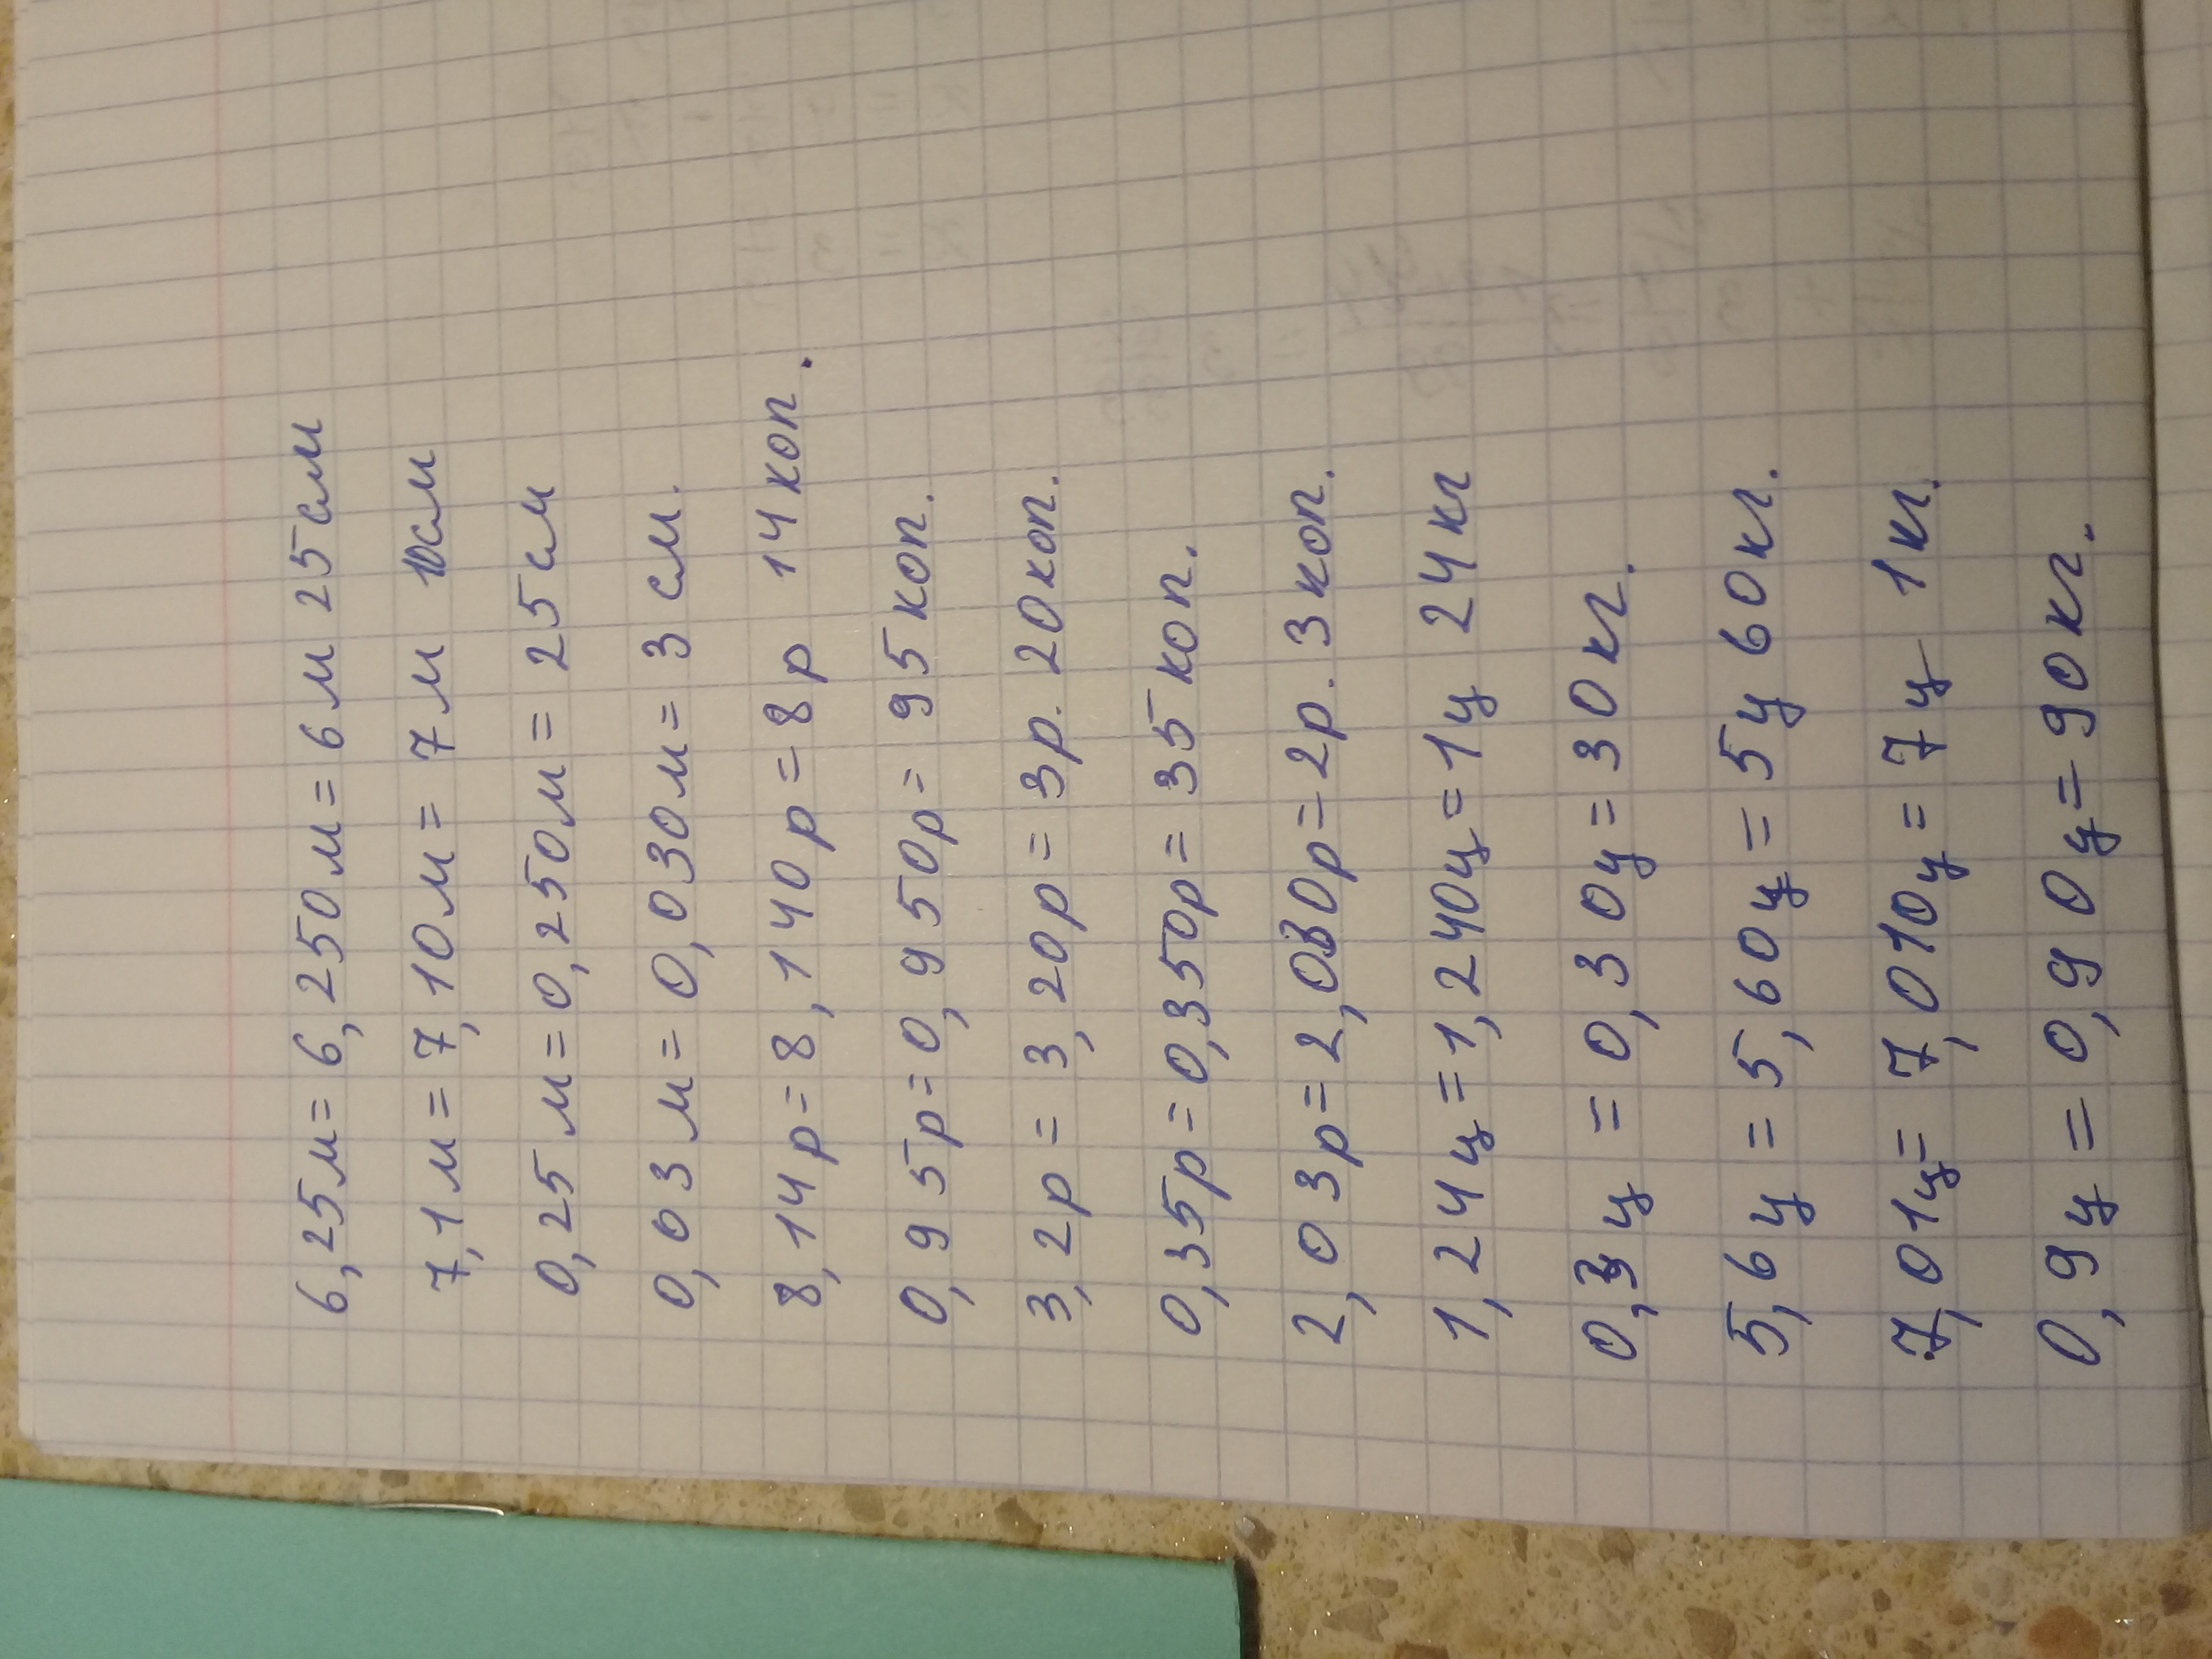 6,25м=6,250м=6м 25см
7,1м=7,10м=7м 10см
0,25м=0,250м=25см
0,03м=0,030м=3см.
8,14р=8,140р=8р 14коп.
0,95р=0,950р=95коп.
3,2р=3,20р=3р.20коп.
0,35р=0,350р=35коп.
2,03р=2,030р=2р.3коп.
1,24ц=1,240ц=1ц 24кг
0,3ц=0,30ц=30кг.
5,6ц=5,60ц=5ц 60кг.
7,01ц=7,010ц=7ц 1кг.
0,9ц=0,90ц=90кг.